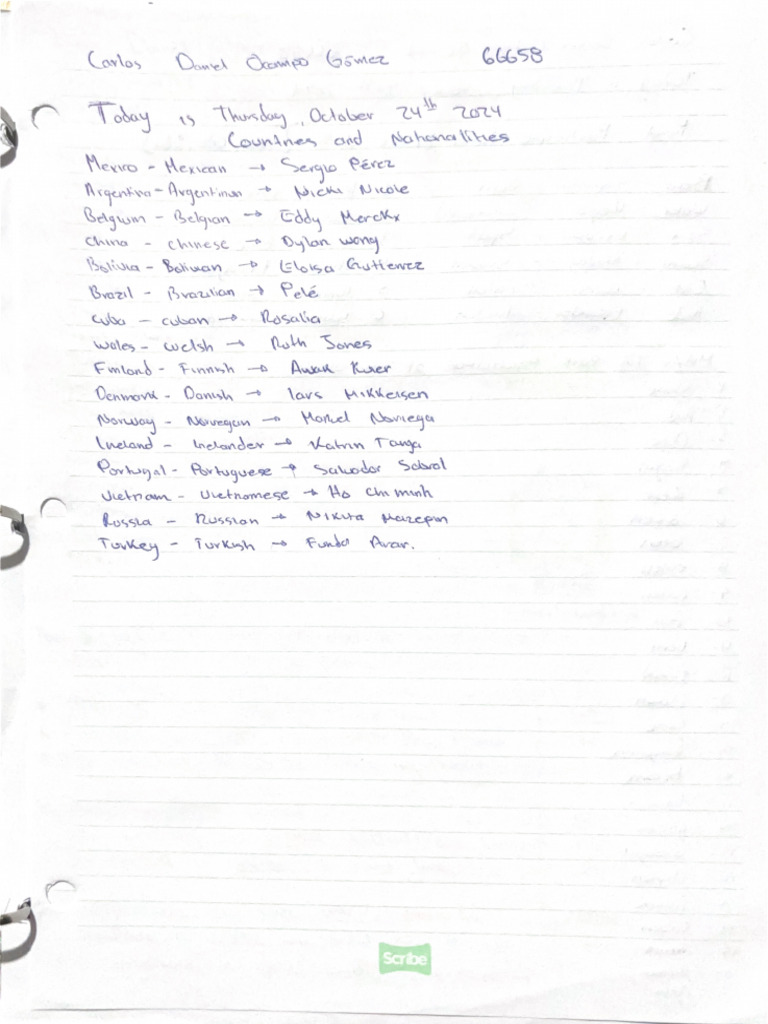 Carlos Daniel Ocampo Gómez 66658
Today is Thursday, October 24th 2024
Countries and Nationalities
Mexico - Mexican → Sergio Pérez
Argentina - Argentinian → Nicki Nicole
Belgium - Belgian → Eddy Merckx
China - chinese → Dylan wong
Bolivia - Bolivian → Eloisa Gutierrez
Brazil - Brazilian → Pelé
Cuba - cuban → Rosalia
Wales - welsh → Ruth Jones
Finland - Finnish →
Denmark - Danish → lars Mikkelsen
Norway - Norvegan → Noriega
Ireland - Irelander → Katrin Tanga
Portugal - Portuguese → Salvador Sobral
Vietnam - Vietnamese → Ho chi minh
Russia - Russian → Nikita Mazepin
Turkey - Turkish → Funda Arar.
Scribe